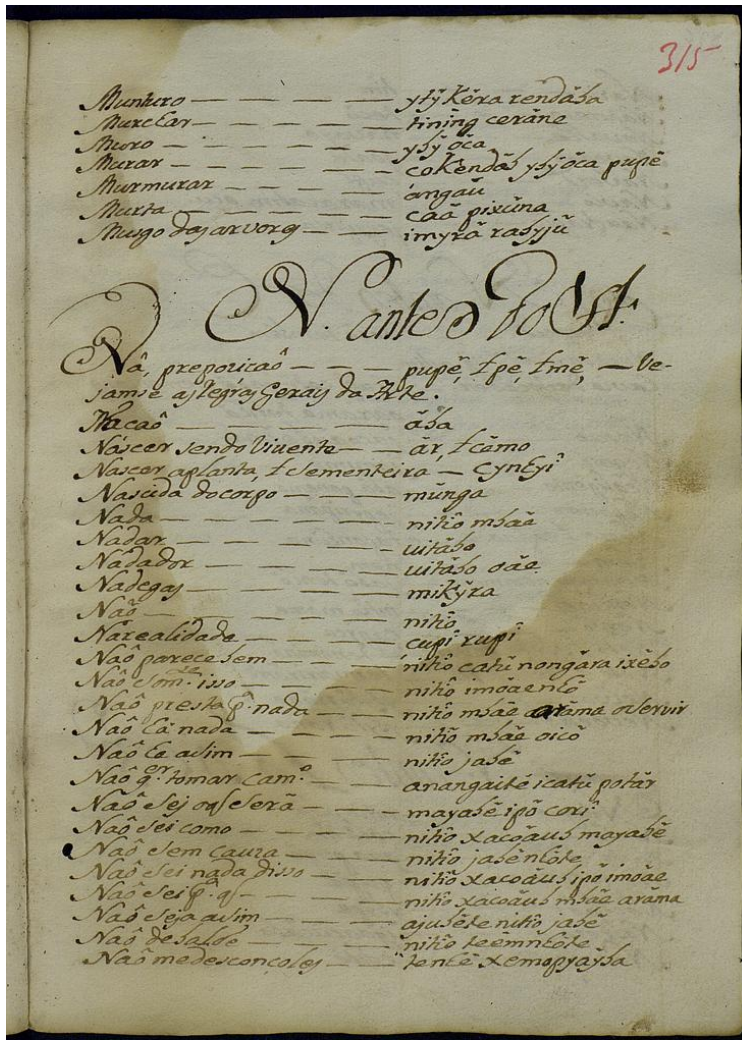 315
Munturo — — — — — ytȳ Kēra rendāba
Murchar — — — — — tining cerāne
Muro — — — — — ybȳ ōca
Murar — — — — — coKendāb ybȳ ōca pupē
Murmurar — — — — angaū
Murta — — — — — caā pixūna
Musgo das arvores — — imyrā rabyjū
N. ante do A.
Nâ, preposicaô — — — pupē, t pē, t mē, — Ve-
jamse as regras Gerais da Arte.
Nacaô — — — — — āba
Nâscer sendo Vivente — — ār, t cēmo
Nascer aplanta, t sementeira — Cynhyî
Nascida do corpo — — — mūnga
Nada — — — — — nitiô mbāe
Nâdar — — — — — uitābo
Nâdador — — — — uitābo oāe
Nadegas — — — — miKȳra
Naô — — — — — nitiô
Na realidade — — — cupî rupî
Naô parece bem — — — nitiô catū nongāra ixēbo
Naô som.te isso — — — nitiô imōaenhō
Naô presta p.a nada — — nitiô mbāe arāma oservir
Naô hâ nada — — — nitiô mbāe oicō
Naô he asim — — — nitiô jabē
Naô q.er tomar cam.o — — anangaitē icatū potār
Naô sei oq serā — — — mayabē ipō cori
Naô sei como — — — nitiô xacoāub mayabē
Naô sem cauza — — — nitiô jabēnhōte
Naô sei nada disso — — nitiô xacoāub ipō imōae
Naô sei p.a q — — — nitiô xacoāub mbāe arāma
Naô seja asim — — — ajubēte nitiô jabē
Naô debalde — — — nitiô teemnhōte
Naô me desconsoles — — tenhē xemopyayba